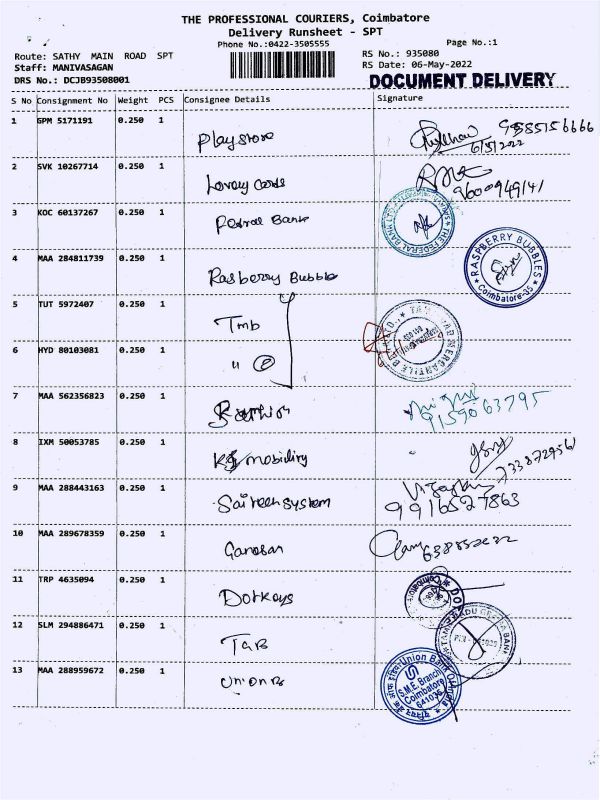 THE PROFESSIONAL COURIERS, Coimbatore
Delivery Runsheet - SPT
Phone No.:0422-3505555
Page No.:1
Route: SATHY MAIN ROAD SPT
RS No.: 935080
Staff: MANIVASAGAN
RS Date: 06-May-2022
DRS No.: DCJB93508001
DOCUMENT DELIVERY
S No Consignment No Weight PCS Consignee Details Signature
1 GPM 5171191 0.250 1 Playstore 9585156666
6/5/2022
2 SVK 10267714 0.250 1 Lovely Cards 9600949141
3 KOC 60137267 0.250 1 Fedral Bank THE FEDERAL BANK LTD
4 MAA 284811739 0.250 1 Rasberry Bubble RASPBERRY BUBBLES Coimbatore-35
5 TUT 5972407 0.250 1 Tmb
6 HYD 80103081 0.250 1 " MERCANTILE BANK LTD.
7 MAA 562356823 0.250 1 9159063795
8 IXM 50053785 0.250 1 mobility 7338729561
9 MAA 288443163 0.250 1 system 9916527863
10 MAA 289678359 0.250 1 Ganesan
11 TRP 4635094 0.250 1 Dotkeys Coimbatore
12 SLM 294886471 0.250 1 TAMIL NADU GRAMA BANK
13 MAA 288959672 0.250 1 Union B Union Bank Of India
S.M.E. Branch
Coimbatore
641035